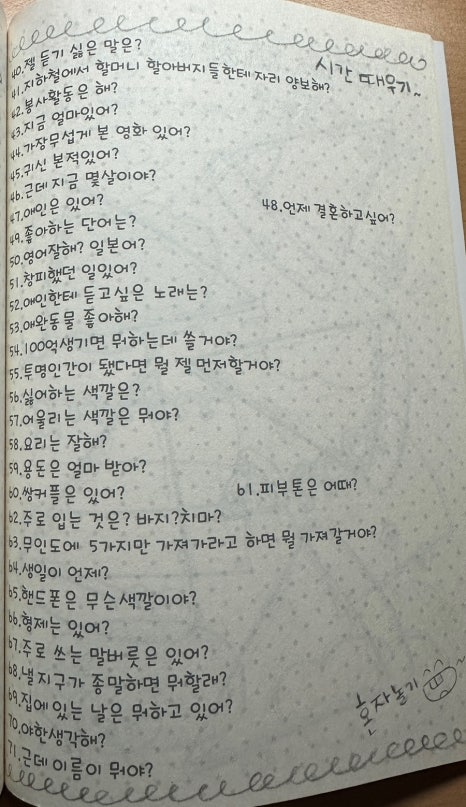 40.젤 듣기 싫은 말은?
시간 때우기~
41.지하철에서 할머니 할아버지들한테 자리 양보해?
42.봉사활동은 해?
43.지금 얼마있어?
44.가장무섭게 본 영화 있어?
45.귀신 본적있어?
46.근데 지금 몇살이야?
47.애인은 있어?
48.언제 결혼하고싶어?
49.좋아하는 단어는?
50.영어잘해? 일본어?
51.창피했던 일있어?
52.애인한테 듣고싶은 노래는?
53.애완동물 좋아해?
54.100억생기면 뭐하는데 쓸거야?
55.투명인간이 됐다면 뭘 젤 먼저할거야?
56.싫어하는 색깔은?
57.어울리는 색깔은 뭐야?
58.요리는 잘해?
59.용돈은 얼마 받아?
60.쌍커플은 있어?
61.피부톤은 어때?
62.주로 입는 것은? 바지?치마?
63.무인도에 5가지만 가져가라고 하면 뭘 가져갈거야?
64.생일이 언제?
65.핸드폰은 무슨색깔이야?
66.형제는 있어?
67.주로 쓰는 말버릇은 있어?
68.낼 지구가 종말하면 뭐할래?
69.집에 있는 날은 뭐하고 있어?
혼자놀기
70.야한생각해?
71.근데 이름이 뭐야?